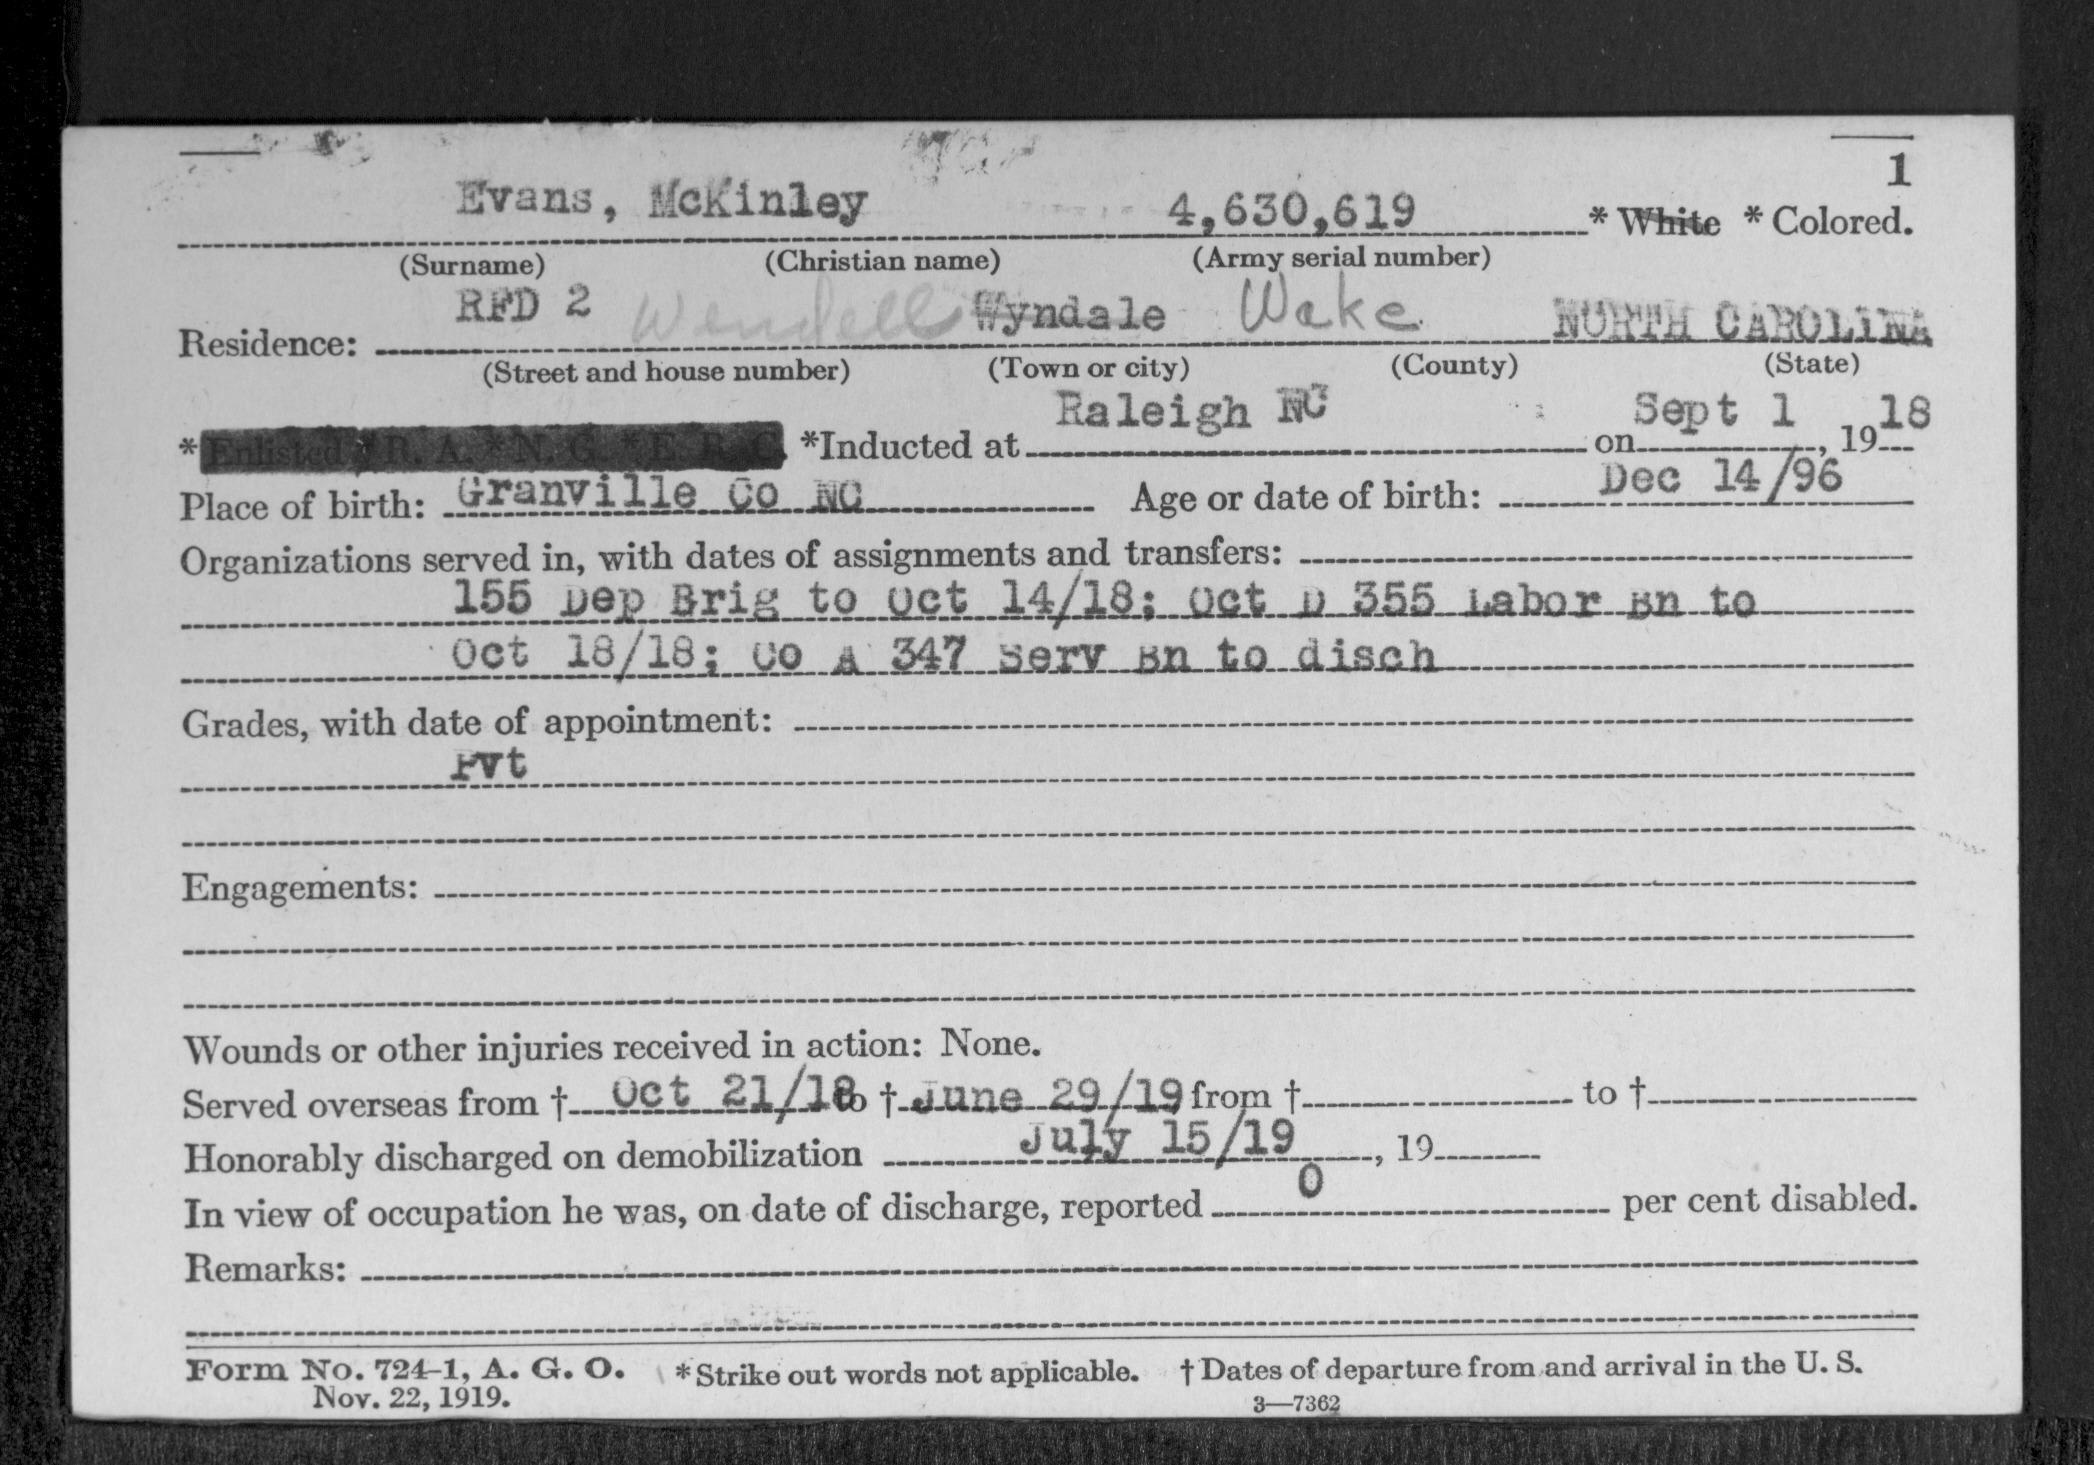 1
Evans, McKinley 4,630,619 * White * Colored.
(Surname) (Christian name) (Army serial number)
RFD 2 Wendell Wyndale Wake NORTH CAROLINA
Residence:
(Street and house number) (Town or city) (County) (State)
Raleigh NC Sept 1 18
*Enlisted *R. A. *N. G. *E. R. C. *Inducted at on , 19
Place of birth: Granville Co NC Age or date of birth: Dec 14/96
Organizations served in, with dates of assignments and transfers:
155 Dep Brig to Oct 14/18; Oct D 355 Labor Bn to
Oct 18/18; Co A 347 Serv Bn to disch
Grades, with date of appointment:
Pvt
Engagements:
Wounds or other injuries received in action: None.
Served overseas from † Oct 21/18 to † June 29/19 from † to †
Honorably discharged on demobilization July 15/19 , 19
In view of occupation he was, on date of discharge, reported 0 per cent disabled.
Remarks:
Form No. 724-1, A. G. O. *Strike out words not applicable. † Dates of departure from and arrival in the U. S.
Nov. 22, 1919. 3—7362